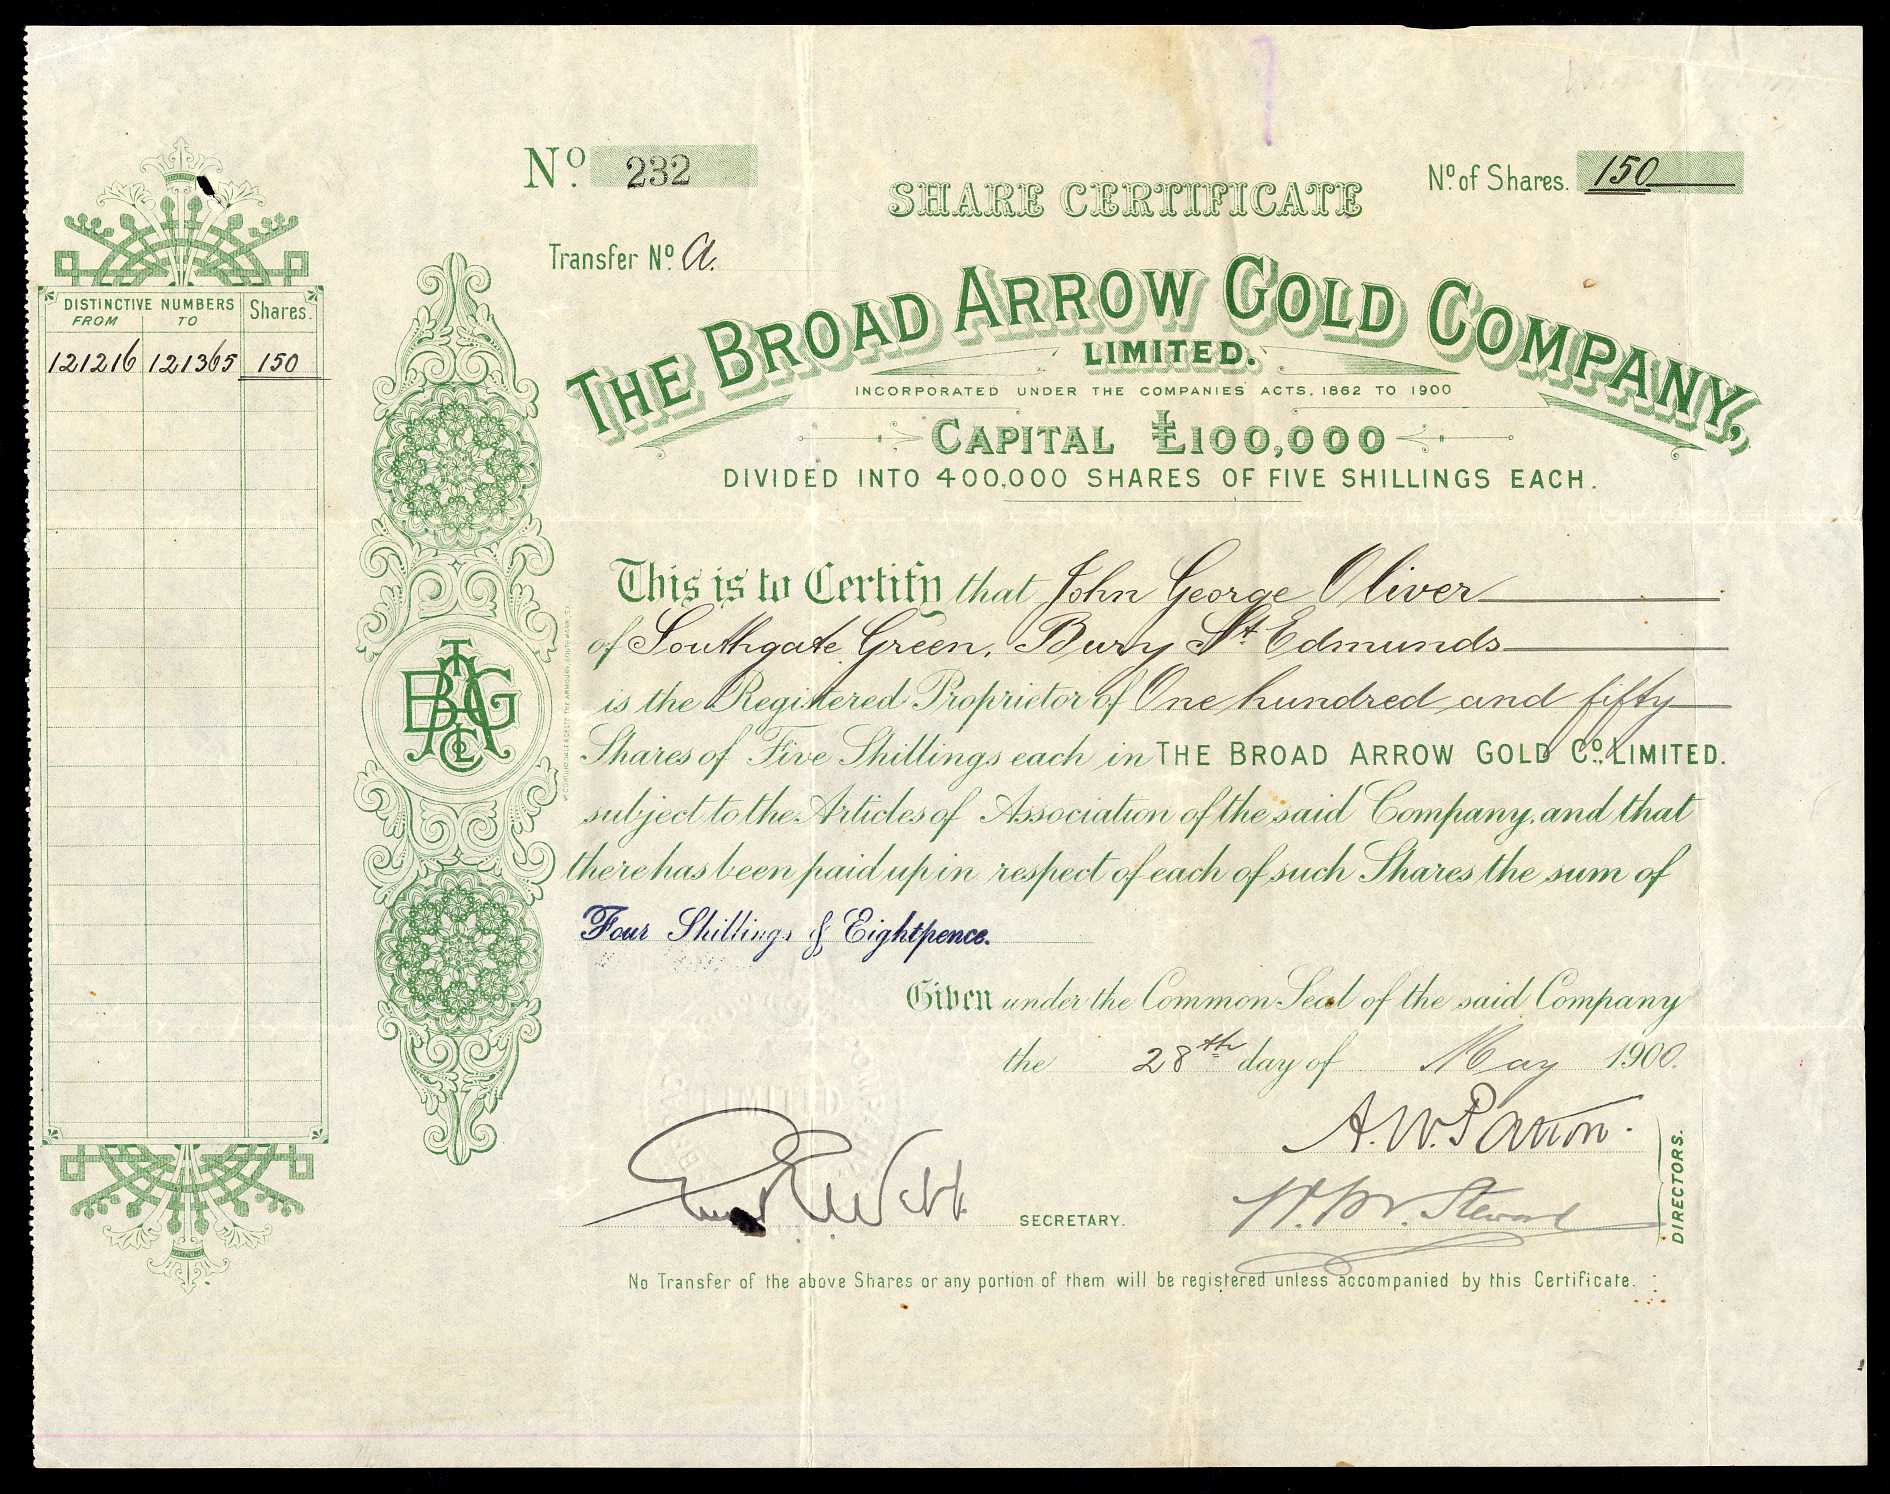 Nº. 232
SHARE CERTIFICATE
Nº of Shares. 150
Transfer Nº. A.
THE BROAD ARROW GOLD COMPANY,
LIMITED.
INCORPORATED UNDER THE COMPANIES ACTS, 1862 TO 1900
CAPITAL £100,000
DIVIDED INTO 400,000 SHARES OF FIVE SHILLINGS EACH.
DISTINCTIVE NUMBERS Shares.
FROM TO
121216 121365 150
This is to Certify that John George Oliver
of Southgate Green, Bury St Edmunds
is the Registered Proprietor of One hundred and fifty
Shares of Five Shillings each in THE BROAD ARROW GOLD Cº. LIMITED.
subject to the Articles of Association of the said Company, and that
there has been paid up in respect of each of such Shares the sum of
Four Shillings & Eightpence.
Given under the Common Seal of the said Company
the 28th day of May 1900.
A. W. Patton.
Webb SECRETARY.
Stewart
DIRECTORS.
No Transfer of the above Shares or any portion of them will be registered unless accompanied by this Certificate.